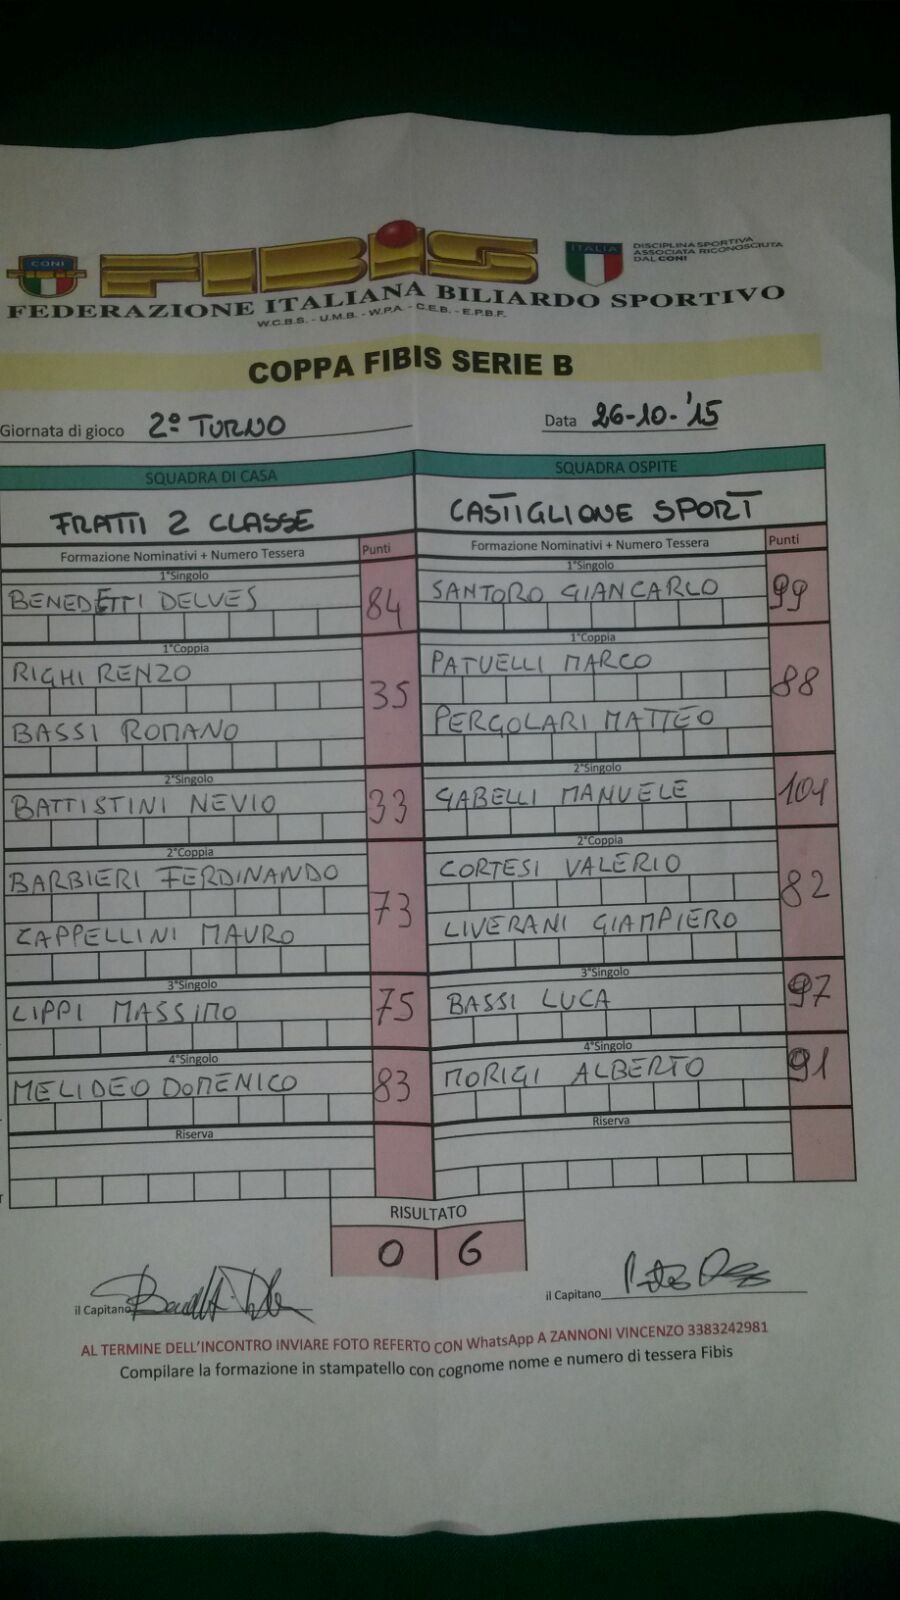 CONI
FIBIS
ITALIA
DISCIPLINA SPORTIVA
ASSOCIATA RICONOSCIUTA
DAL CONI
FEDERAZIONE ITALIANA BILIARDO SPORTIVO
W.C.B.S. - U.M.B. - W.P.A. - C.E.B. - E.P.B.F.
COPPA FIBIS SERIE B
Giornata di gioco 2º TURNO Data 26-10-'15
SQUADRA DI CASA SQUADRA OSPITE
FRATTI 2 CLASSE CASTIGLIONE SPORT
Formazione Nominativi + Numero Tessera Punti Formazione Nominativi + Numero Tessera Punti
1°Singolo 1°Singolo
BENEDETTI DELVES 84 SANTORO GIANCARLO 99
1°Coppia 1°Coppia
RIGHI RENZO 35 PATUELLI MARCO 88
BASSI ROMANO PERGOLARI MATTEO
2°Singolo 2°Singolo
BATTISTINI NEVIO 33 GABELLI MANUELE 104
2°Coppia 2°Coppia
BARBIERI FERDINANDO 73 CORTESI VALERIO 82
CAPPELLINI MAURO LIVERANI GIAMPIERO
3°Singolo 3°Singolo
LIPPI MASSIMO 75 BASSI LUCA 97
4°Singolo 4°Singolo
MELIDEO DOMENICO 83 MORIGI ALBERTO 91
Riserva Riserva
RISULTATO
0 6
il Capitano il Capitano
AL TERMINE DELL'INCONTRO INVIARE FOTO REFERTO CON WhatsApp A ZANNONI VINCENZO 3383242981
Compilare la formazione in stampatello con cognome nome e numero di tessera Fibis